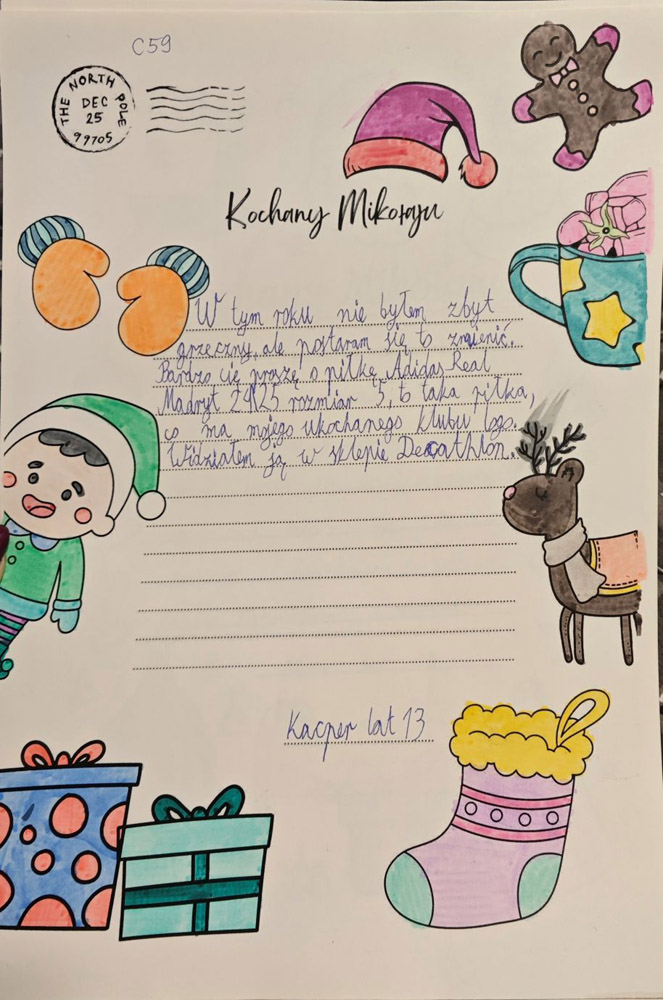 C59
THE NORTH POLE
DEC
25
99705
Kochany Mikołaju
W tym roku nie byłem zbyt
grzeczny, ale postaram się to zmienić.
Bardzo cię proszę o piłkę Adidas Real
Madryt 24/25 rozmiar 5, to taka piłka,
co ma mojego ukochanego klubu logo.
Widziałem ją w sklepie Decathlon.
Kacper lat 13